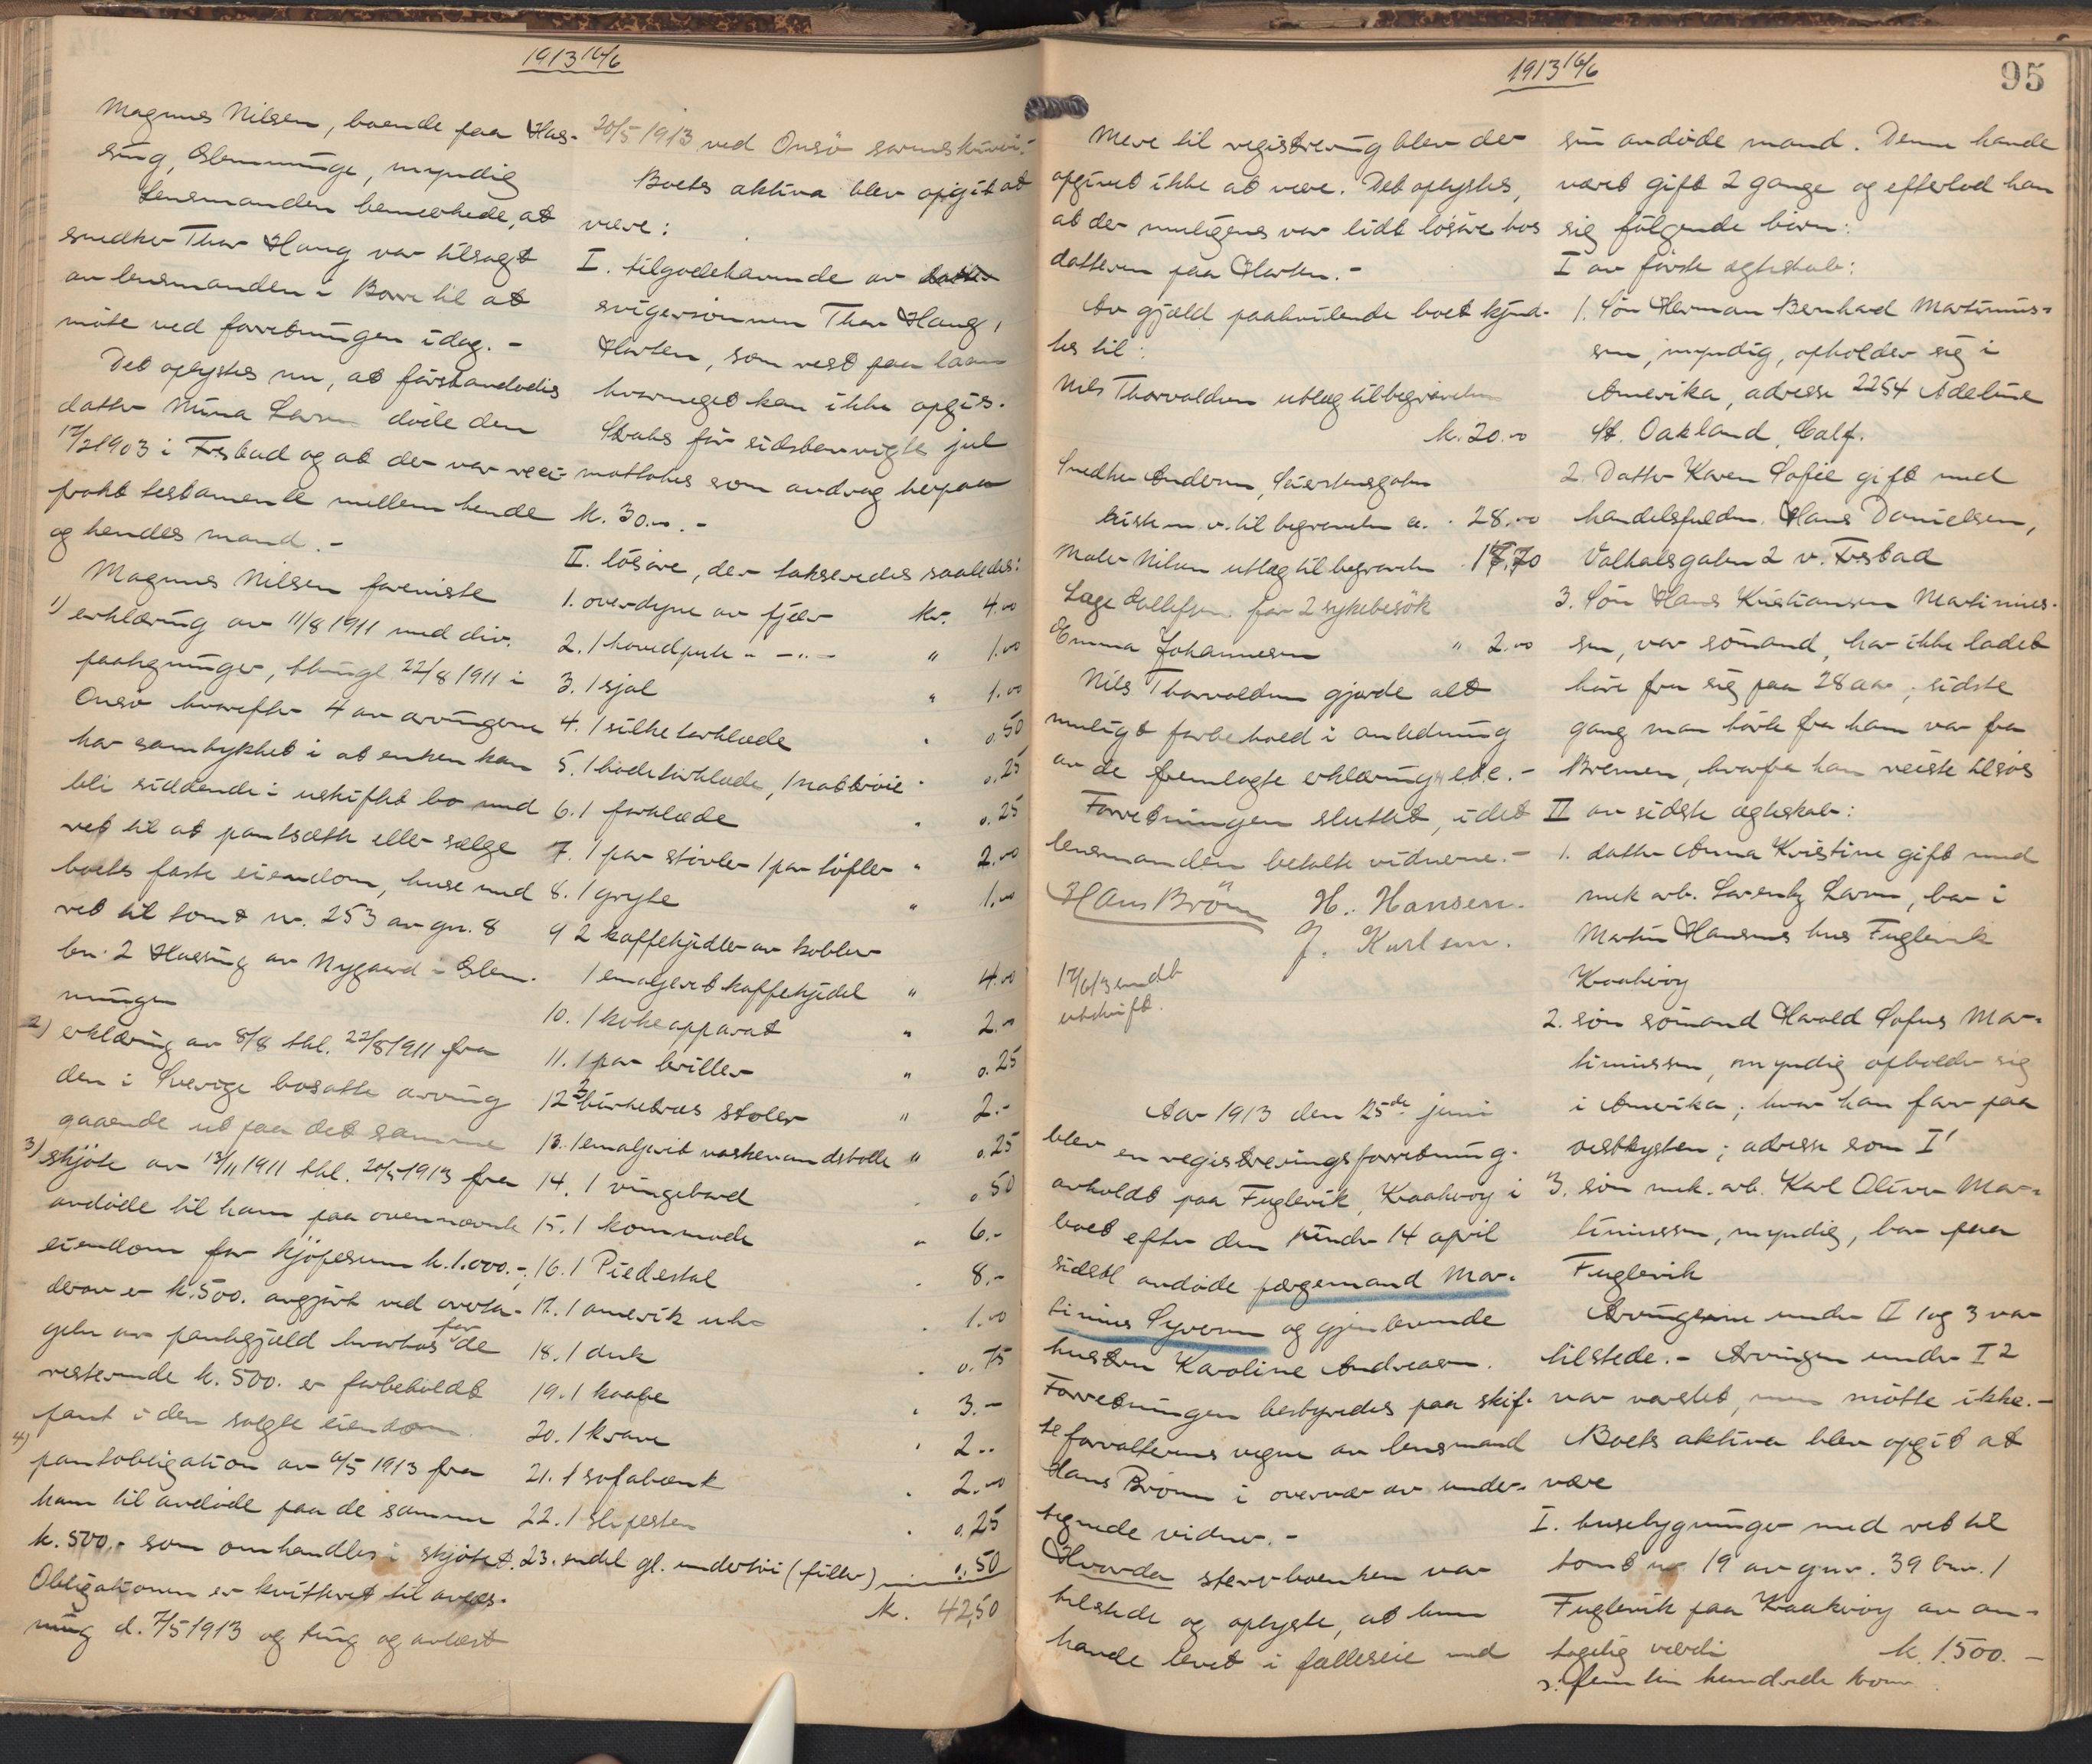 1913 16/6
Magnus Nilsen, boende paa Has-
sing, Glemminge, myndig
Lensmanden bemerkede, at
snedker Thor Haug var tilsagt
av lensmanden i Borre til at
möte ved forretningen idag. -
Det oplystes nu, at förstavdödes
datter Mina Larsen döde den
12/2 1903 i Frstad og at der var reci-
prokt testamente mellem hende
og hendes mand. -
Magnus Nilsen foreviste
1) erklæring av 11/8 1911 med div.
paategninger, thingl 22/8 1911 i
Onsö hvorefter 4 av arvingerne
har samtykket i at enken kan
bli siddende i uskiftet bo med
ret til at pantsætte eller sælge
boets faste eiendom, huse med
ret til tomt nr. 253 av gn. 8
bn. 2 Hassing av Nygaard i Glem-
minge
2) erklæring av 8/8 thl. 22/8 1911 fra
den i Sverige bosatte arving
gaaende ut paa det samme
3) skjöte av 13/11 1911 thl. 20/5 1913 fra
avdöde til ham paa ovennævnte
eiendom for kjöpesum k. 1.000.-,
derav er k. 500. avgjort ved overta-
gelse av pantegjæld hvorhos for de
resterende k. 500. er forbeholdt
pant i den solgte eiendom.
4) pantobligation av 6/5 1913 fra
ham til avdöde paa de samme
k. 500.- som omhandles i skjötet.
Obligationen er kvitteret til avlæs-
ning d. 7/5 1913 og ting og avlæst
20/5 1913 ved Onsö sorenskriveri.-
Boets aktiva blev opgit at
være:
I. tilgodehavende av
svigersönnen Thor Haug,
Horten, som rest paa laan
hvormeget kan ikke opgis.
Straks för sidstavvigte jul
mottokes som avdrag herpaa
k. 30.00. -
II. lösöre, der takseredes saaledes:
1. overdyne av fjær kr. 4.00
2. 1 hovedpute - -"- " 1.00
3. 1 sjal " 1.00
4. 1 silketörklæde " 0.50
5. 1 hodetörklæde, 1 nattröie " 0.25
6. 1 forklæde " 0.25
7. 1 par stövler 1 par töfler " 2.00
8. 1 gryte " 1.00
9 2 kaffekjedler av kobber
1 emaljeret kaffekjedel " 4.00
10. 1 kokeapparat " 2.00
11. 1 par briller " 0.25
12 3 birketræs stoler " 2.-
13. 1 emaljeret vaskevandsbolle " 0.25
14. 1 vingebord " 0.50
15. 1 kommode " 6.-
16. 1 Piedestal " 8.-
17. 1 amerik uhr " 1.00
18. 1 duk " 0.75
19. 1 kaape " 3.-
20. 1 krave " 2..
21. 1 sofabænk " 2.00
22. 1 slipesten " 0.25
23. endel gl. undertöi (filler) " 0.50
k. 42,50
1913 16/6
95
Mere til registrering blev der
opgivet ikke at være. Det oplystes,
at der muligens var lidt lösöre hos
datteren paa Horten. -
Av gjæld paahvilende boet kjend-
tes til:
Nils Thorvaldsen utlæg til begravelsen
k. 20.00
Snedker Andersen,
kisten m. v. til begravelsen a. " 28.00
Nilsen utlæg til begravelsen " 17.70
Læge Tollefsen for 2 sykebesök
Emma Johannesen " 2.00
Nils Thorvaldsen gjorde alt
muligt forbehold i anledning
av de fremlagte erklæringer etc. -
Forretningen sluttet, idet
lensmanden betalte vidnerne. -
Hans Brönn H. Hansen.
J. Karlsen.
17/6 13 sendt
utskrift.
Aar 1913 den 25de juni
blev en registreringsforretning
avholdt paa Fuglevik, Kraakeröy i
boet efter den under 14 april
sidstl avdöde færgemand Mar-
tinius Syversen og gjenlevende
hustru Karoline Andreasen.
Forretningen bestyredes paa skif-
teforvalterens vegne av lensmand
Hans Brönn i overvær av under-
tegnede vidner. -
Hvorda stervboenken var
tilstede og oplyste, at hun
havde levet i fælleseie med
sin avdöde mand. Denne havde
været gift 2 gange og efterlod han
sig fölgende börn:
I av förste ægteskab:
1. Sön Herman Bernhard Martinius-
sen, myndig, opholder sig i
Amerika, adresse 2254 Adeline
St. Oakland, Calf.
2. Datter Karen Sofie gift med
handelsfuldm. Hans Danielsen,
Valhalsgaten 2 v. Frstad
3. Sön Hans Kristiansen Martinius-
sen, var sömand, har ikke ladet
höre fra sig paa 28 aar, sidste
gang man hörte fra ham var fra
Bremen, hvorfra han reiste tilsös
II av sidste ægteskab:
1. datter Anna Kristine gift med
mek arb. Lorentz Larsen, bor i
Martin Hansens hus Fuglevik
Kraakeröy
2. sön sömand Harald Sofus Mar-
tiniussen, myndig opholder sig
i Amerika; hvor han far paa
vestkysten; adresse som I 1
3. sön mek. arb. Karl Oliver Mar-
tiniussen, myndig, bor paa
Fuglevik
Arvingerne under II 1 og 3 var
tilstede. - Arvingen under I 2
var varslet, men mötte ikke. -
Boets aktiva blev opgit at
være
I. husebygninger med ret til
tomt nr 19 av gnr. 39 bnr. 1
Fuglevik paa Kraakeröy av an-
tagelig værdi k. 1.500. -
s. fem tin hundrede kron